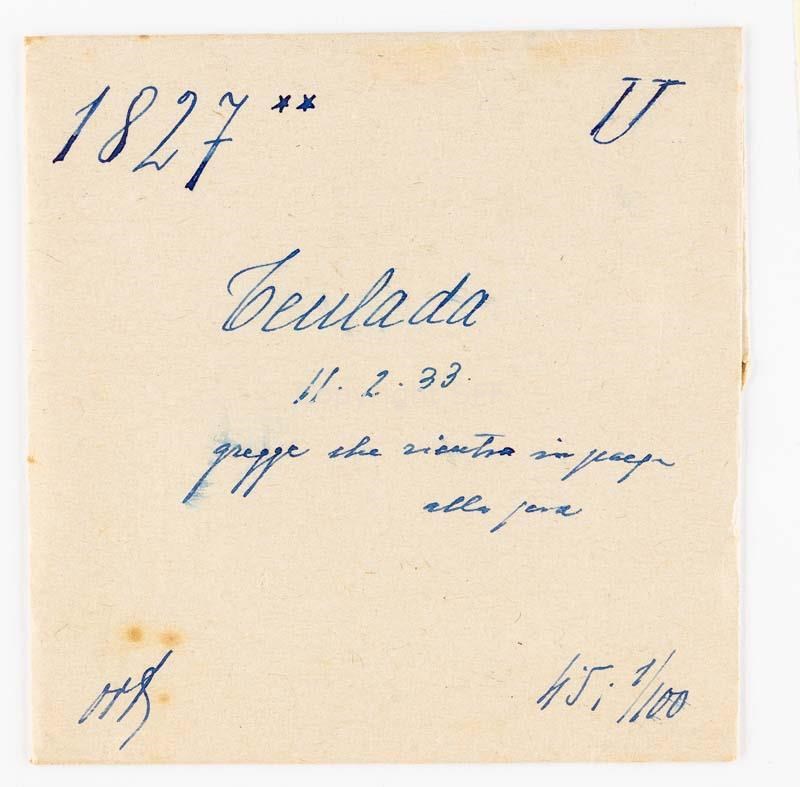 1827 ** U
Teulada
11. 2. 33.
gregge che rientra in paese
alla sera
45; 1/100